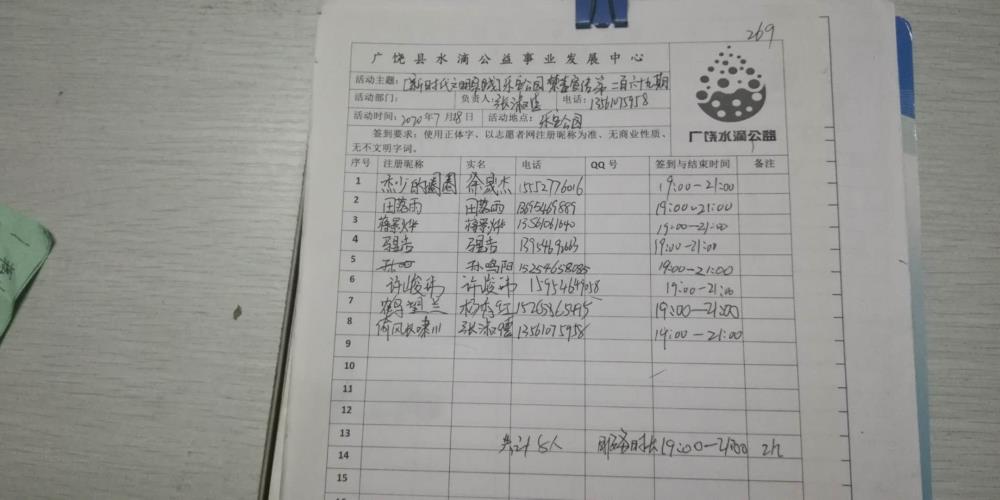 269
广饶县水滴公益事业发展中心
活动主题：[新时代文明实践]乐安公园禁毒宣传第二百六十九期
活动部门： 负责人：张淑德 电话：13561075958
活动时间：2020年7月18日 活动地点：乐安公园
签到要求：使用正体字、以志愿者网注册昵称为准、无商业性质、
无不文明字词。
广饶水滴公益
序号 注册昵称 实名 电话 QQ号 签到与结束时间 备注
1 杰少的圈圈 徐晟杰 15552776016 19:00-21:00
2 田露雨 田露雨 19:00-21:00
3 蒋景烨 蒋景烨 19:00-21:00
4 19:00-21:00
5 孙鸣阳 15254658085 19:00-21:00
6 许峻玮 许峻玮 19:00-21:00
7 杨秀红 19:00-21:00
8 倚风长啸川 张淑德 13561075958 19:00-21:00
9
10
11
12
13 共计 人 服务时长19:00-21:00 2h
14
15